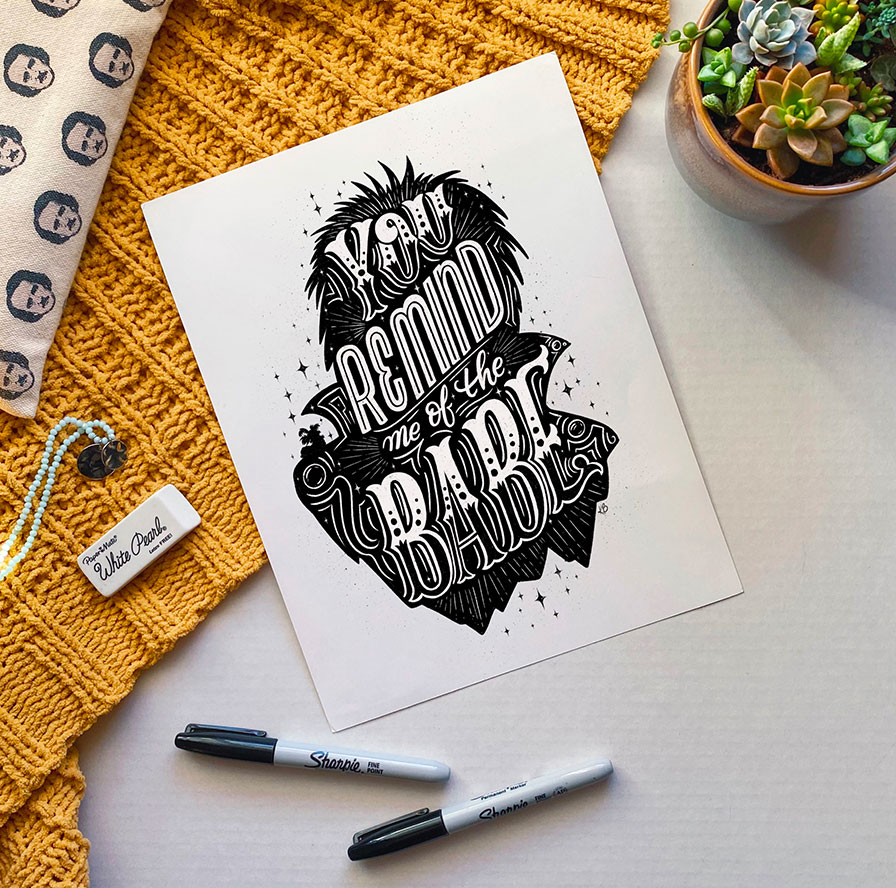 YOU
REMIND
me of the
BABE
Paper Mate
White Pearl
Latex FREE!
Sharpie FINE POINT
Permanent Marker
Sharpie